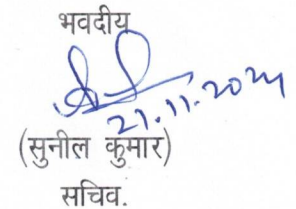 भवदीय
21.11.2024
(सुनील कुमार)
सचिव.